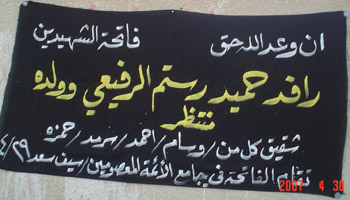 ان وعد الله حق
فاتحة الشهيدين
رافد حميد رستم الرفيعي وولده
منتظر
شقيق كل من / وسام / احمد / سرمد / حمزه
تقام الفاتحة في جامع الأئمة المعصومين / سيف سعد ٤/٢٩
2007 4 30